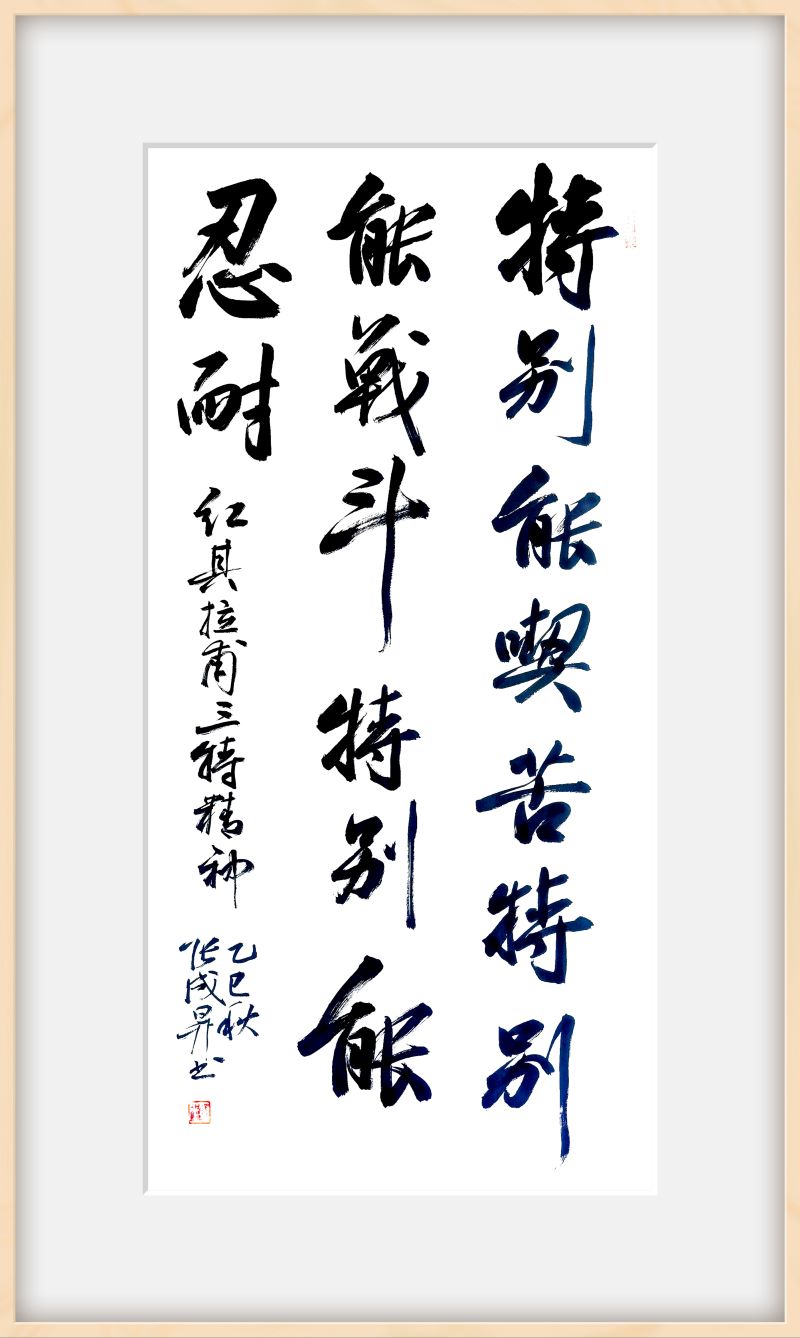 特别能喫苦特别
能戰斗特别能
忍耐
红其拉甫三特精神
乙巳秋
张成昇书